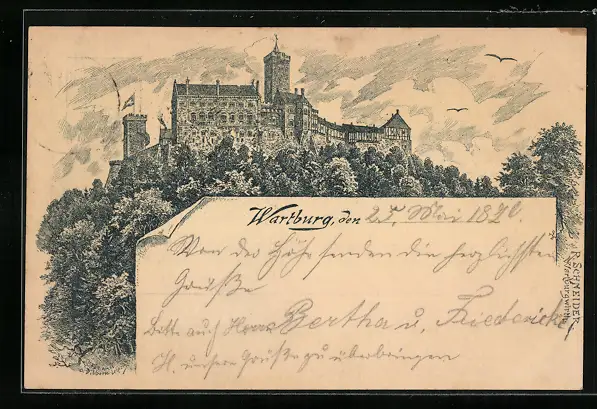 Wartburg, den 25. Mai 18
Von der Höhe senden die herzlichsten
Grüße
Bitte auch Bertha u. Friedericke
H. unsere Grüße zu überbringen
R. SCHNEIDER